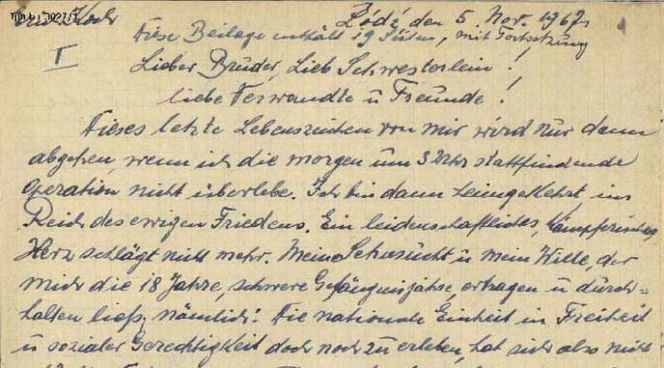 Erich Koch
Łódź den 5. Nov. 1967
Diese Beilage enthält 19 Seiten, mit Fortsetzung
I
Lieber Bruder, Lieb Schwesterlein!
liebe Verwandte u Freunde!
Dieses letzte Lebenszeichen von mir wird nur dann
abgehen, wenn ich die morgen um 3 Uhr stattfindende
Operation nicht überlebe. Ich bin dann heimgekehrt, ins
Reich des ewigen Friedens. Ein leidenschaftliches, kämpferisches
Herz schlägt nicht mehr. Meine Sehnsucht u mein Wille, der
mich die 18 Jahre, schwere Gefängnisjahre, ertragen u durch-
halten ließ, nämlich: Die nationale Einheit in Freiheit
u sozialer Gerechtigkeit doch noch zu erleben, hat sich also nicht